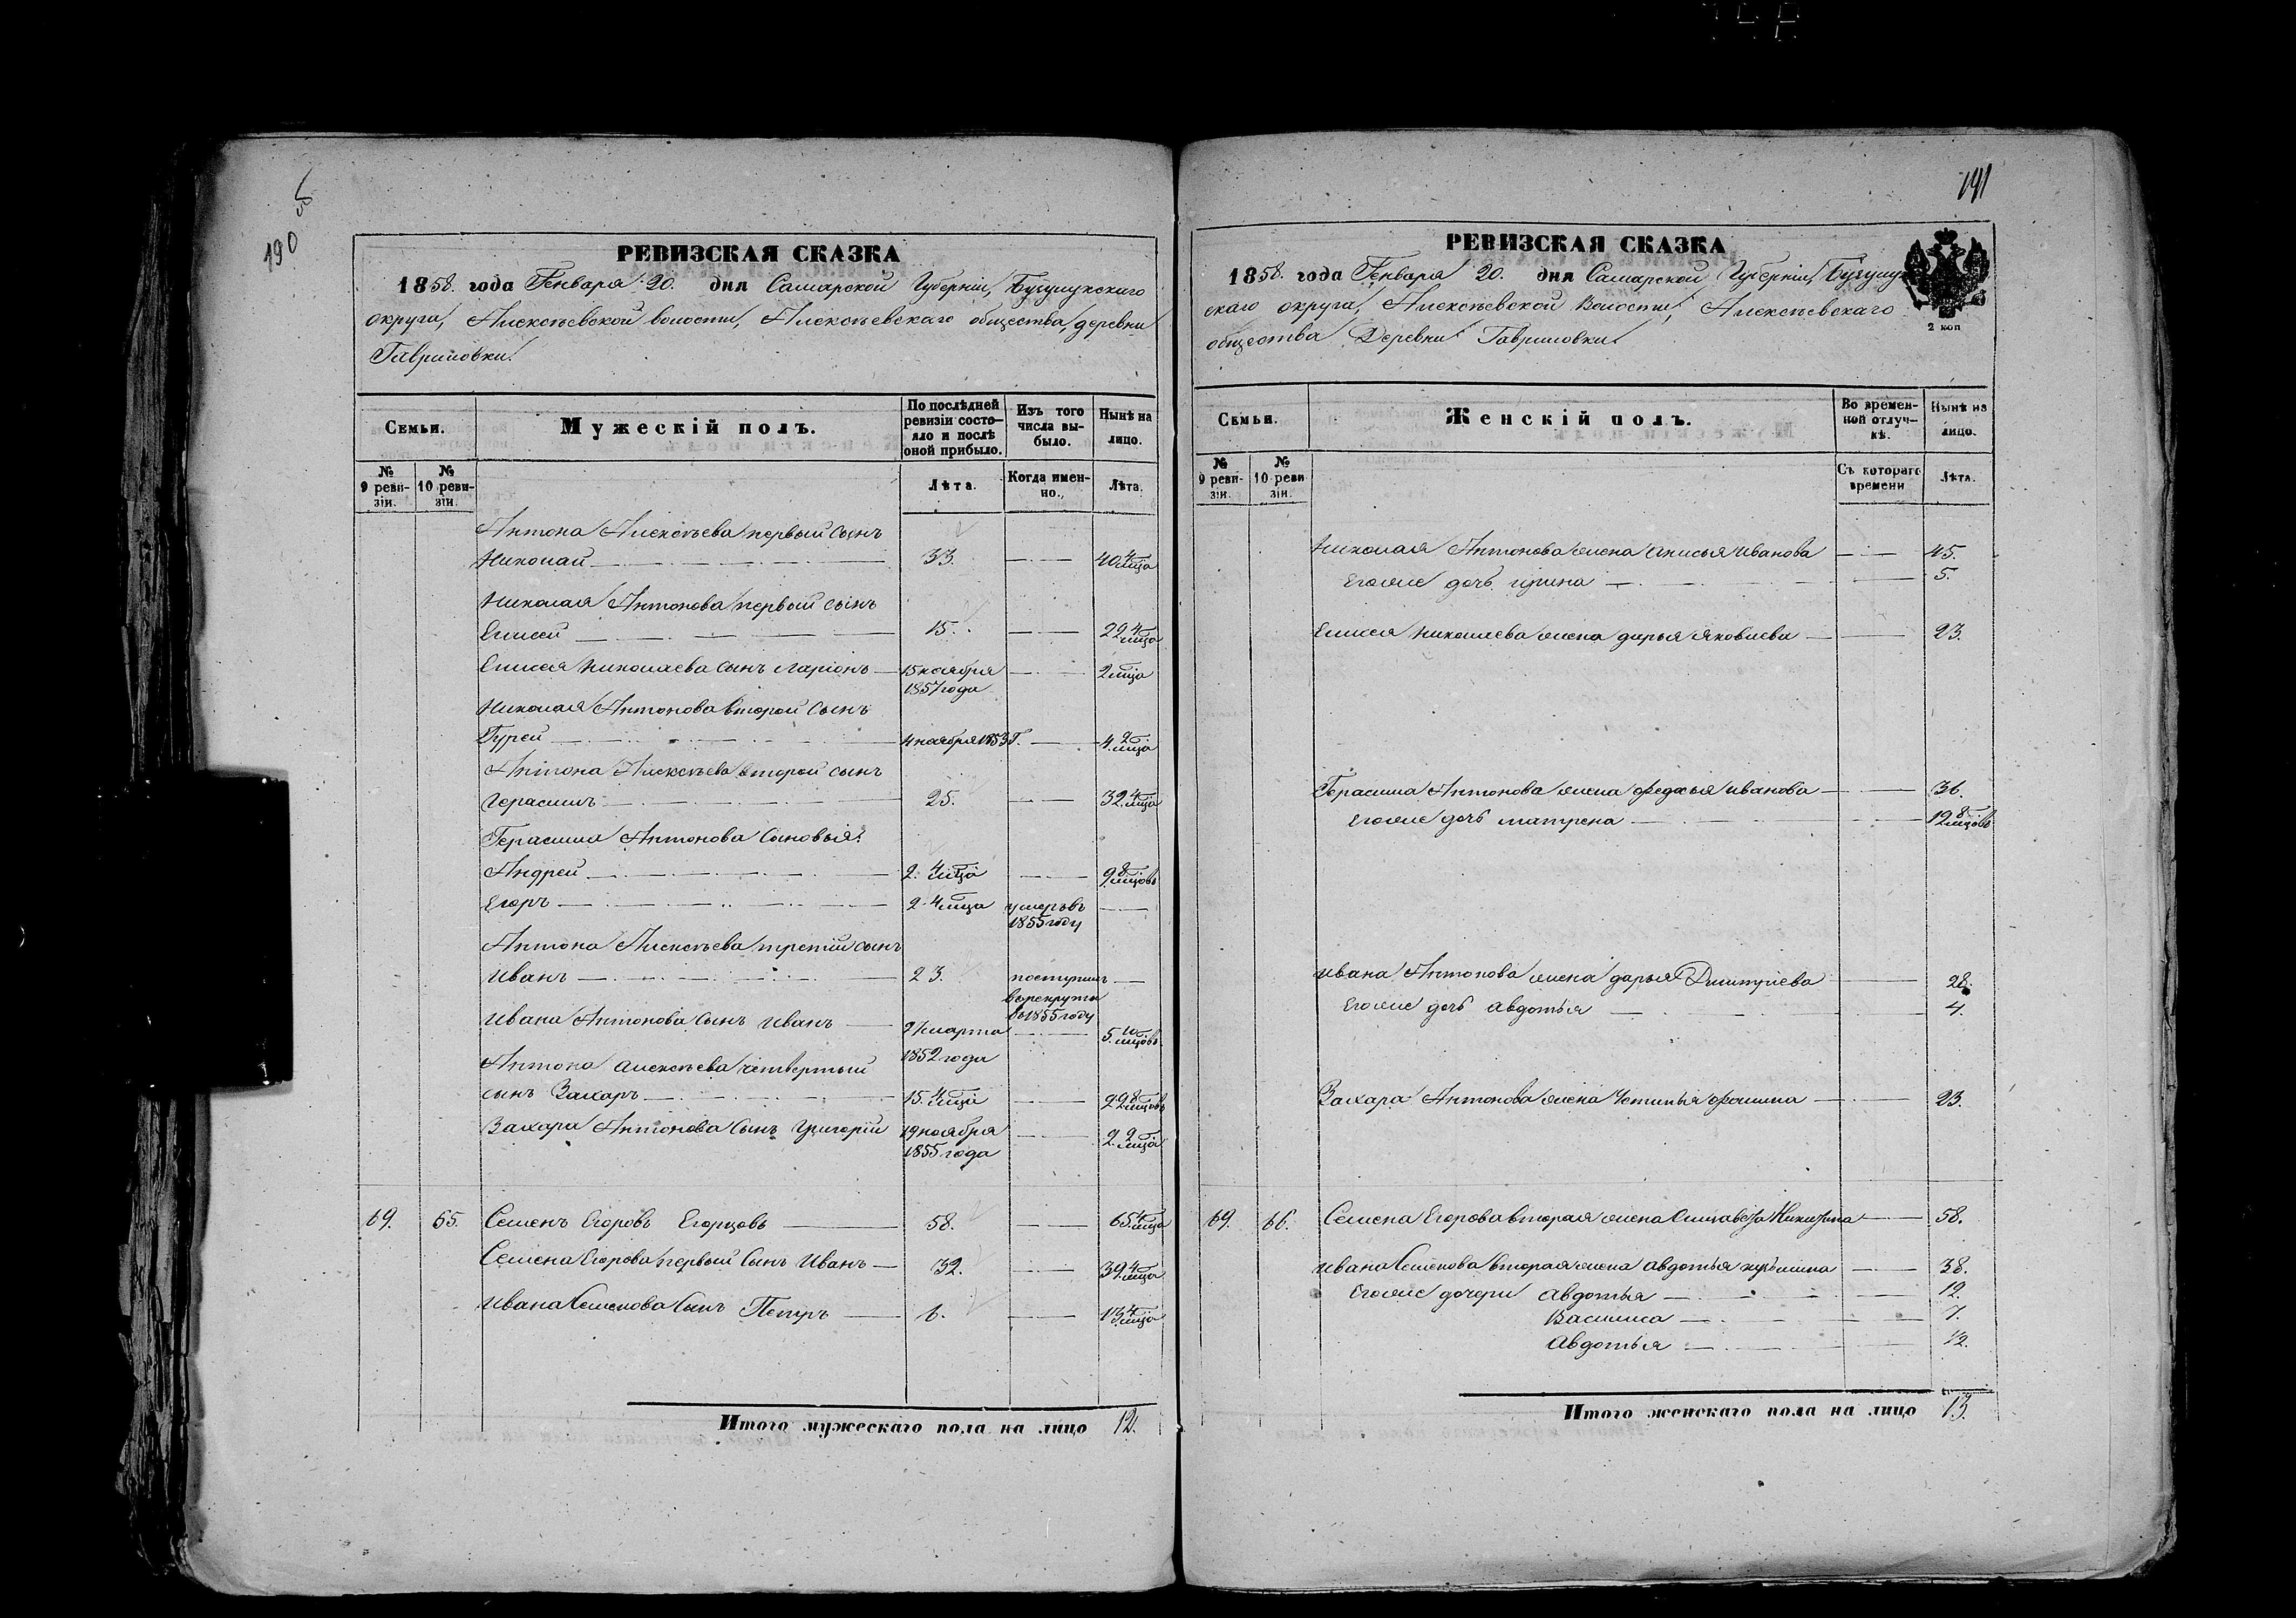 190 об
РЕВИЗСКАЯ СКАЗКА
1858. года Генваря 20. дня Самарской Губерніи, Бугулукского
округа, Алексѣевской волости, Алексѣевскаго общества, деревни
Гавриловки.
Семьи.
Мужескій полъ.
По послѣдней
ревизіи состо-
яло и послѣ
оной прибыло.
Изъ того
числа вы-
было.
Нынѣ на
лицо.
№
9 реви-
зіи.
№
10 реви-
зіи.
Лѣта.
Когда имен-
но.,
Лѣта.
Антона Алексѣева первый сынъ
Николай 33. 40 4 мца
Николая Антонова первый сынъ
Елисей 15. 22 4 мца
Елисея Николаева сынъ Ларіонъ 15 ноября 2 мца
1857 года
Николая Антонова второй сынъ
Гурей 4 ноября 1853 г. 4. 2 мца
Антона Алексѣева второй сынъ
Герасимъ 25. 32. 4 мца
Герасима Антонова сыновья:
Андрей 2. 4 мца 9. 8 мцовъ
Егоръ 2. 4 мца умеръ въ
1855 году
Антона Алексѣева третій сынъ
Иванъ 23. поступилъ
въ рекруты
въ 1855 году
Ивана Антонова сынъ Иванъ 27 марта 5. 10 мцовъ
1852 года
Антона Алексѣева четвертый
сынъ Захаръ 15. 4 мца 22 8 мцовъ
Захара Антонова сынъ Григорій 19 ноября 2. 2 мца
1855 года
69. 65. Семенъ Егоровъ Егорцовъ 58. 65 4 мца
Семена Егорова первый сынъ Иванъ 32. 39 4 мца
Ивана Семенова сынъ Петръ 6. 13 4 мца
Итого мужескаго пола на лицо 12.
191
РЕВИЗСКАЯ СКАЗКА
1858. года Генваря 20. дня Самарской Губерніи, Бугулук
скаго округа, Алексѣевской Волости, Алексѣевскаго
общества Деревни Гавриловки
2 коп
Семьи.
Женскій полъ.
Во времен-
ной отлуч-
кѣ.
Нынѣ на
лицо.
№
9 реви-
зіи.
№
10 реви
зіи.
Съ котораго
времени
Лѣта.
Николая Антонова жена Анисья Иванова 45.
Егоже дочь Ирина 5.
Елисея Николаева жена Дарья Яковлева 23.
Герасима Антонова жена Федосья Иванова 36.
Егоже дочь Матрена 12 8 мцовъ
Ивана Антонова жена Дарья Дмитріева 28.
Егоже дочь Авдотья 4.
Захара Антонова жена Устинья Фомина 23.
69. 66. Семена Егорова вторая жена Елизавета Никитина 58.
Ивана Семенова вторая жена Авдотья Кузьмина 38.
Егоже дочери Авдотья 12.
Василиса 7.
Авдотья 12.
Итого женскаго пола на лицо 13.